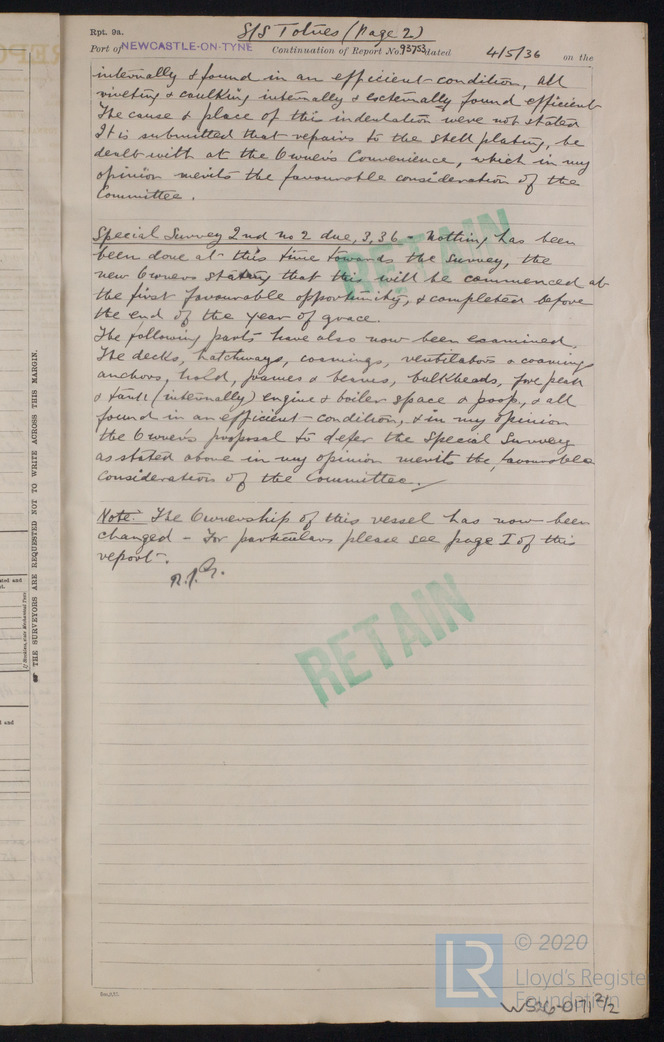 Rpt. 9a.
S/S Totnes (Page 2)
Port of NEWCASTLE-ON-TYNE Continuation of Report No. 93753 dated 4/5/36 on the
internally & found in an efficient condition, all
riveting & caulking internally & externally found efficient
The cause & place of this indentation were not stated
It is submitted that repairs to the shell plating, be
dealt with at the Owners Convenience, which in my
opinion merits the favourable consideration of the
Committee.
Special Survey 2nd No 2 due, 3,36 - Nothing has been
been done at this time towards the Survey, the
new Owners stating that this will be commenced at
the first favourable opportunity, & completed before
the end of the year of grace.
The following parts have also now been examined,
The decks, hatchways, coamings, ventilators & coaming
anchors, hold, frames & beams, bulkheads, fore peak
& tank (internally) engine & boiler space & poop, & all
found in an efficient condition, & in my opinion
the Owners proposal to defer the Special Survey
as stated above in my opinion merits the favourable
consideration of the Committee.
Note. The Ownership of this vessel has now been
changed - For particulars please see page I of this
report.
RETAIN
RETAIN
THE SURVEYORS ARE REQUESTED NOT TO WRITE ACROSS THIS MARGIN.
LR
© 2020
Lloyd's Register
Foundation
WS26-0171 2/2